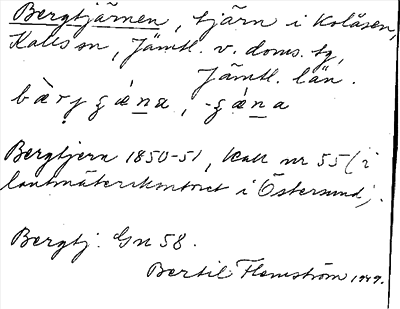 Bergtjärnen, tjärn i Kolåsen,
Kalls sn, Jämtl. v. doms. tg,
Jämtl. län.
Bergtjern 1850-51, Kall nr 55 (i
lantmäterikontoret i Östersund).
Bergtj. Gn 58.
Bertil Flemström 1949.